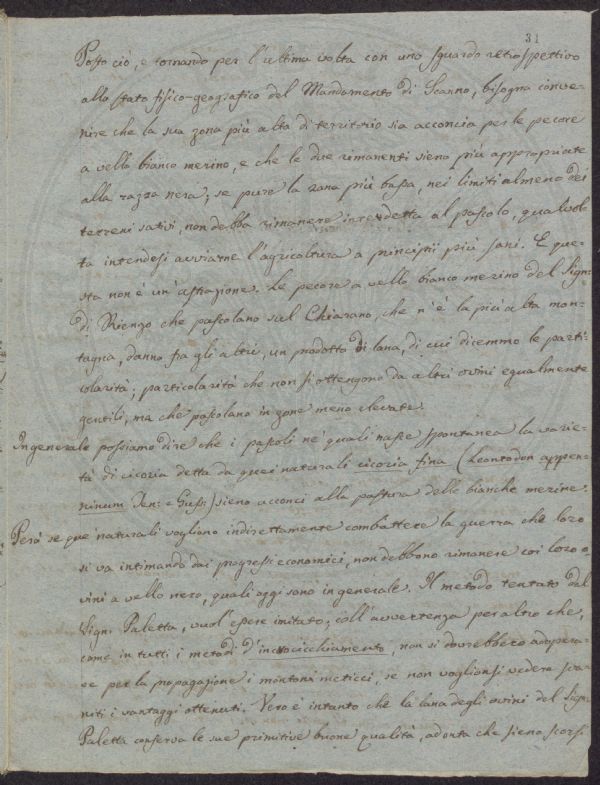 31
Posto ciò, e tornando per l'ultima volta con uno sguardo retrospettivo
allo stato fisico-geografico del Mandamento di Scanno, bisogna conve-
nire che la sua zona più alta di territorio sia acconcia per le pecore
a vello bianco merino, e che le due rimanenti sieno più appropriate
alla razza nera; se pure la zona più bassa, nei limiti almeno dei
terreni sativi, non debba rimanere interdetta al pascolo, qualvol-
ta intendesi avviarne l'agricoltura a principii più sani. E que-
sta non è un'astrazione. Le pecore a vello bianco merino del Sign:
di Rienzo che pascolano sul Chiarano, che n'è la più alta mon-
tagna, danno fra gli altri, un prodotto di lana, di cui dicemmo le parti-
colarità; particolarità che non si ottengono da altri ovini egualmente
gentili, ma che pascolano in zone meno elevate.
In generale possiamo dire che i pascoli ne' quali nasce spontanea la varie-
tà di cicoria detta da quei naturali cicoria fina (Leontodon appen-
ninum Ten: e Guss:) sieno acconci alla pastura delle bianche merine.
Però se que' naturali vogliano indirettamente combattere la guerra che loro
si va intimando dai progressi economici, non debbono rimanere coi loro o-
vini a vello nero, quali oggi sono in generale. Il metodo tentato dal
Sign: Paletta, vuol essere imitato; coll'avvertenza peraltro che,
come in tutti i metodi d'incrocicchiamento, non si dovrebbero adopera-
re per la propagazione i montoni meticci, se non voglionsi vedere sva-
niti i vantaggi ottenuti. Vero è intanto che la lana degli ovini del Sign:
Paletta conserva le sue primitive buone qualità, ad onta che sieno scorsi